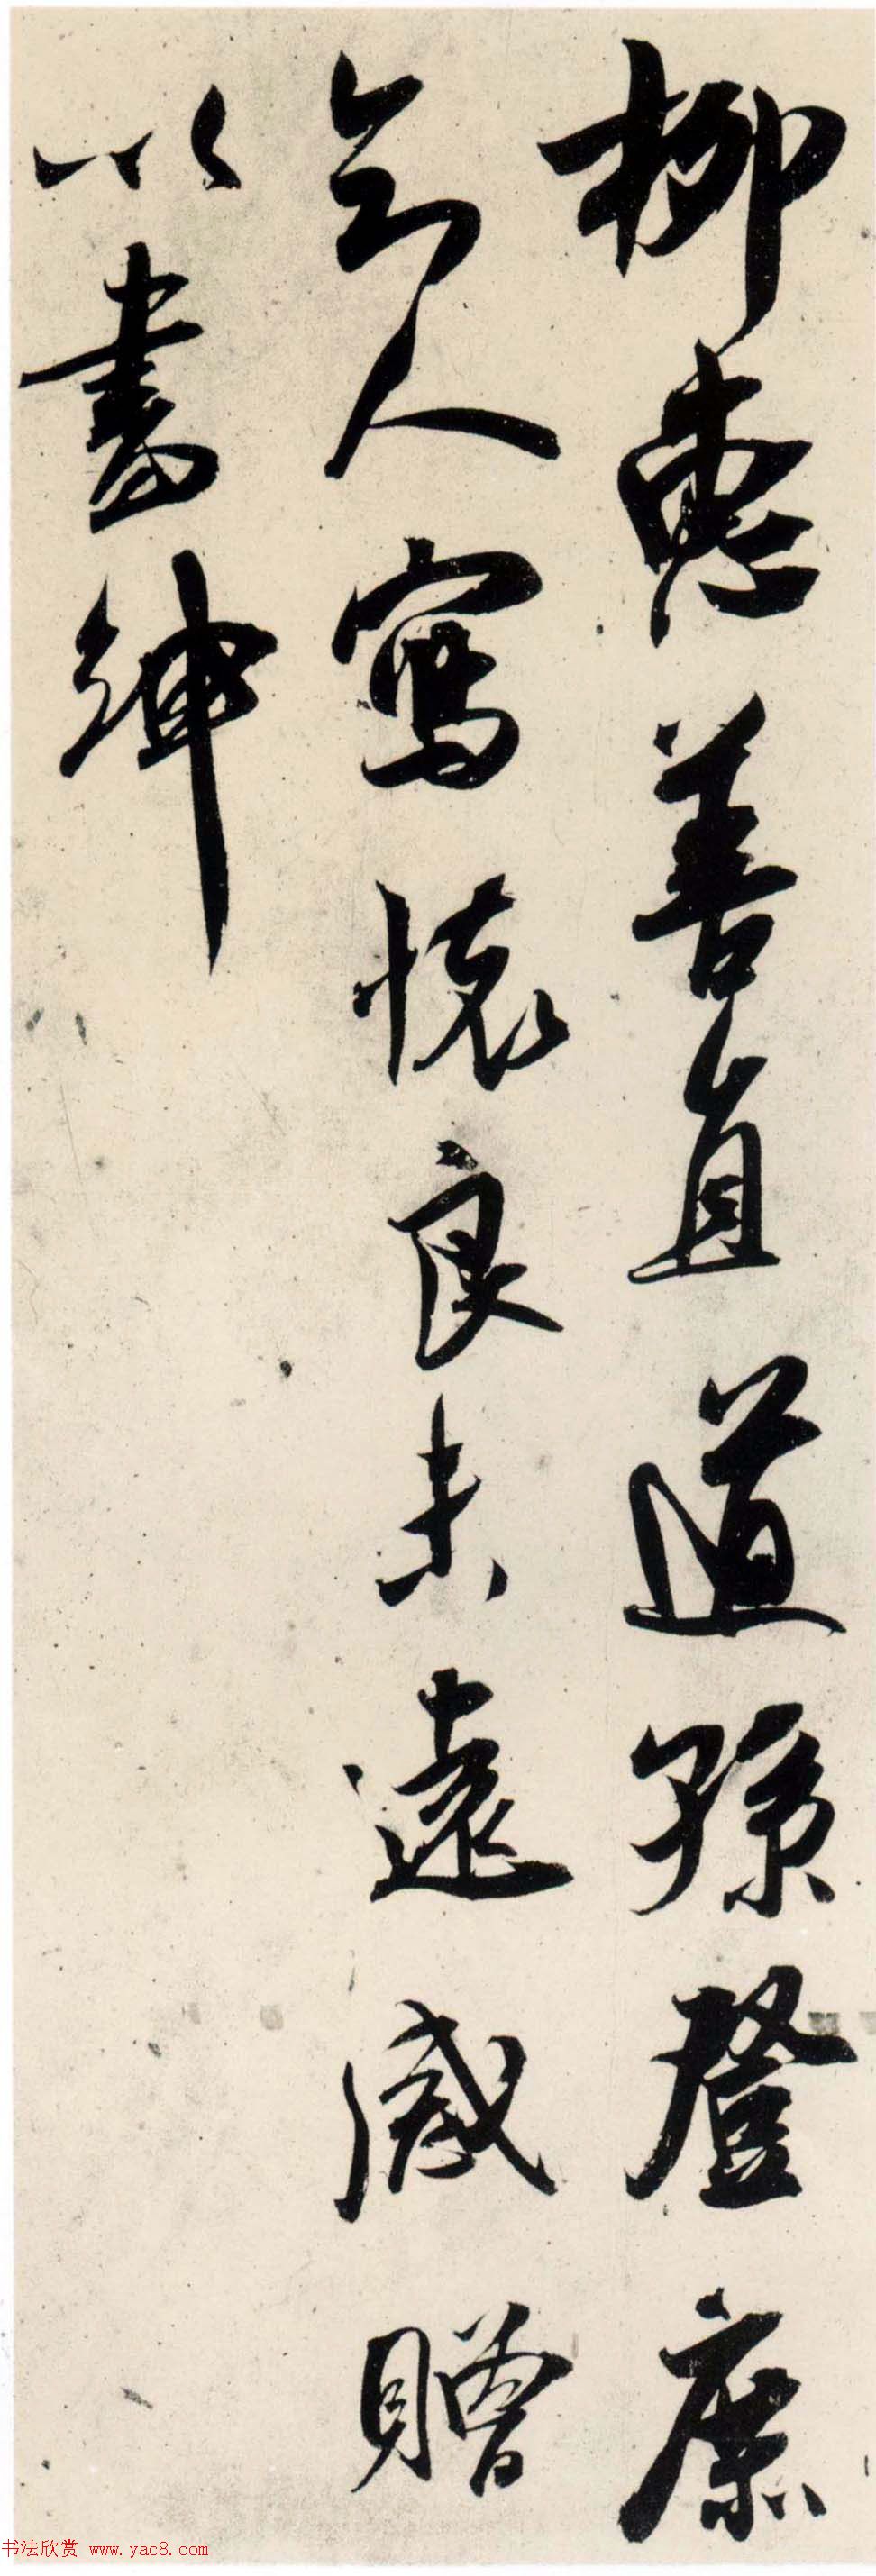 柳惠善直道孫登庶
知人寫懷良未遠感贈
以書紳
书法欣赏 www.yac8.com